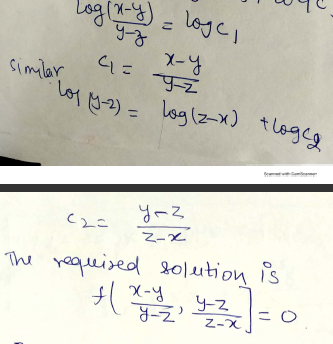 log(x-y)/y-z = log c1
similar c1 = x-y/y-z
log (y-z) = log(z-x) + log c2
Scanned with CamScanner
c2 = y-z/z-x
The required solution is
f( x-y/y-z, y-z/z-x ] = 0